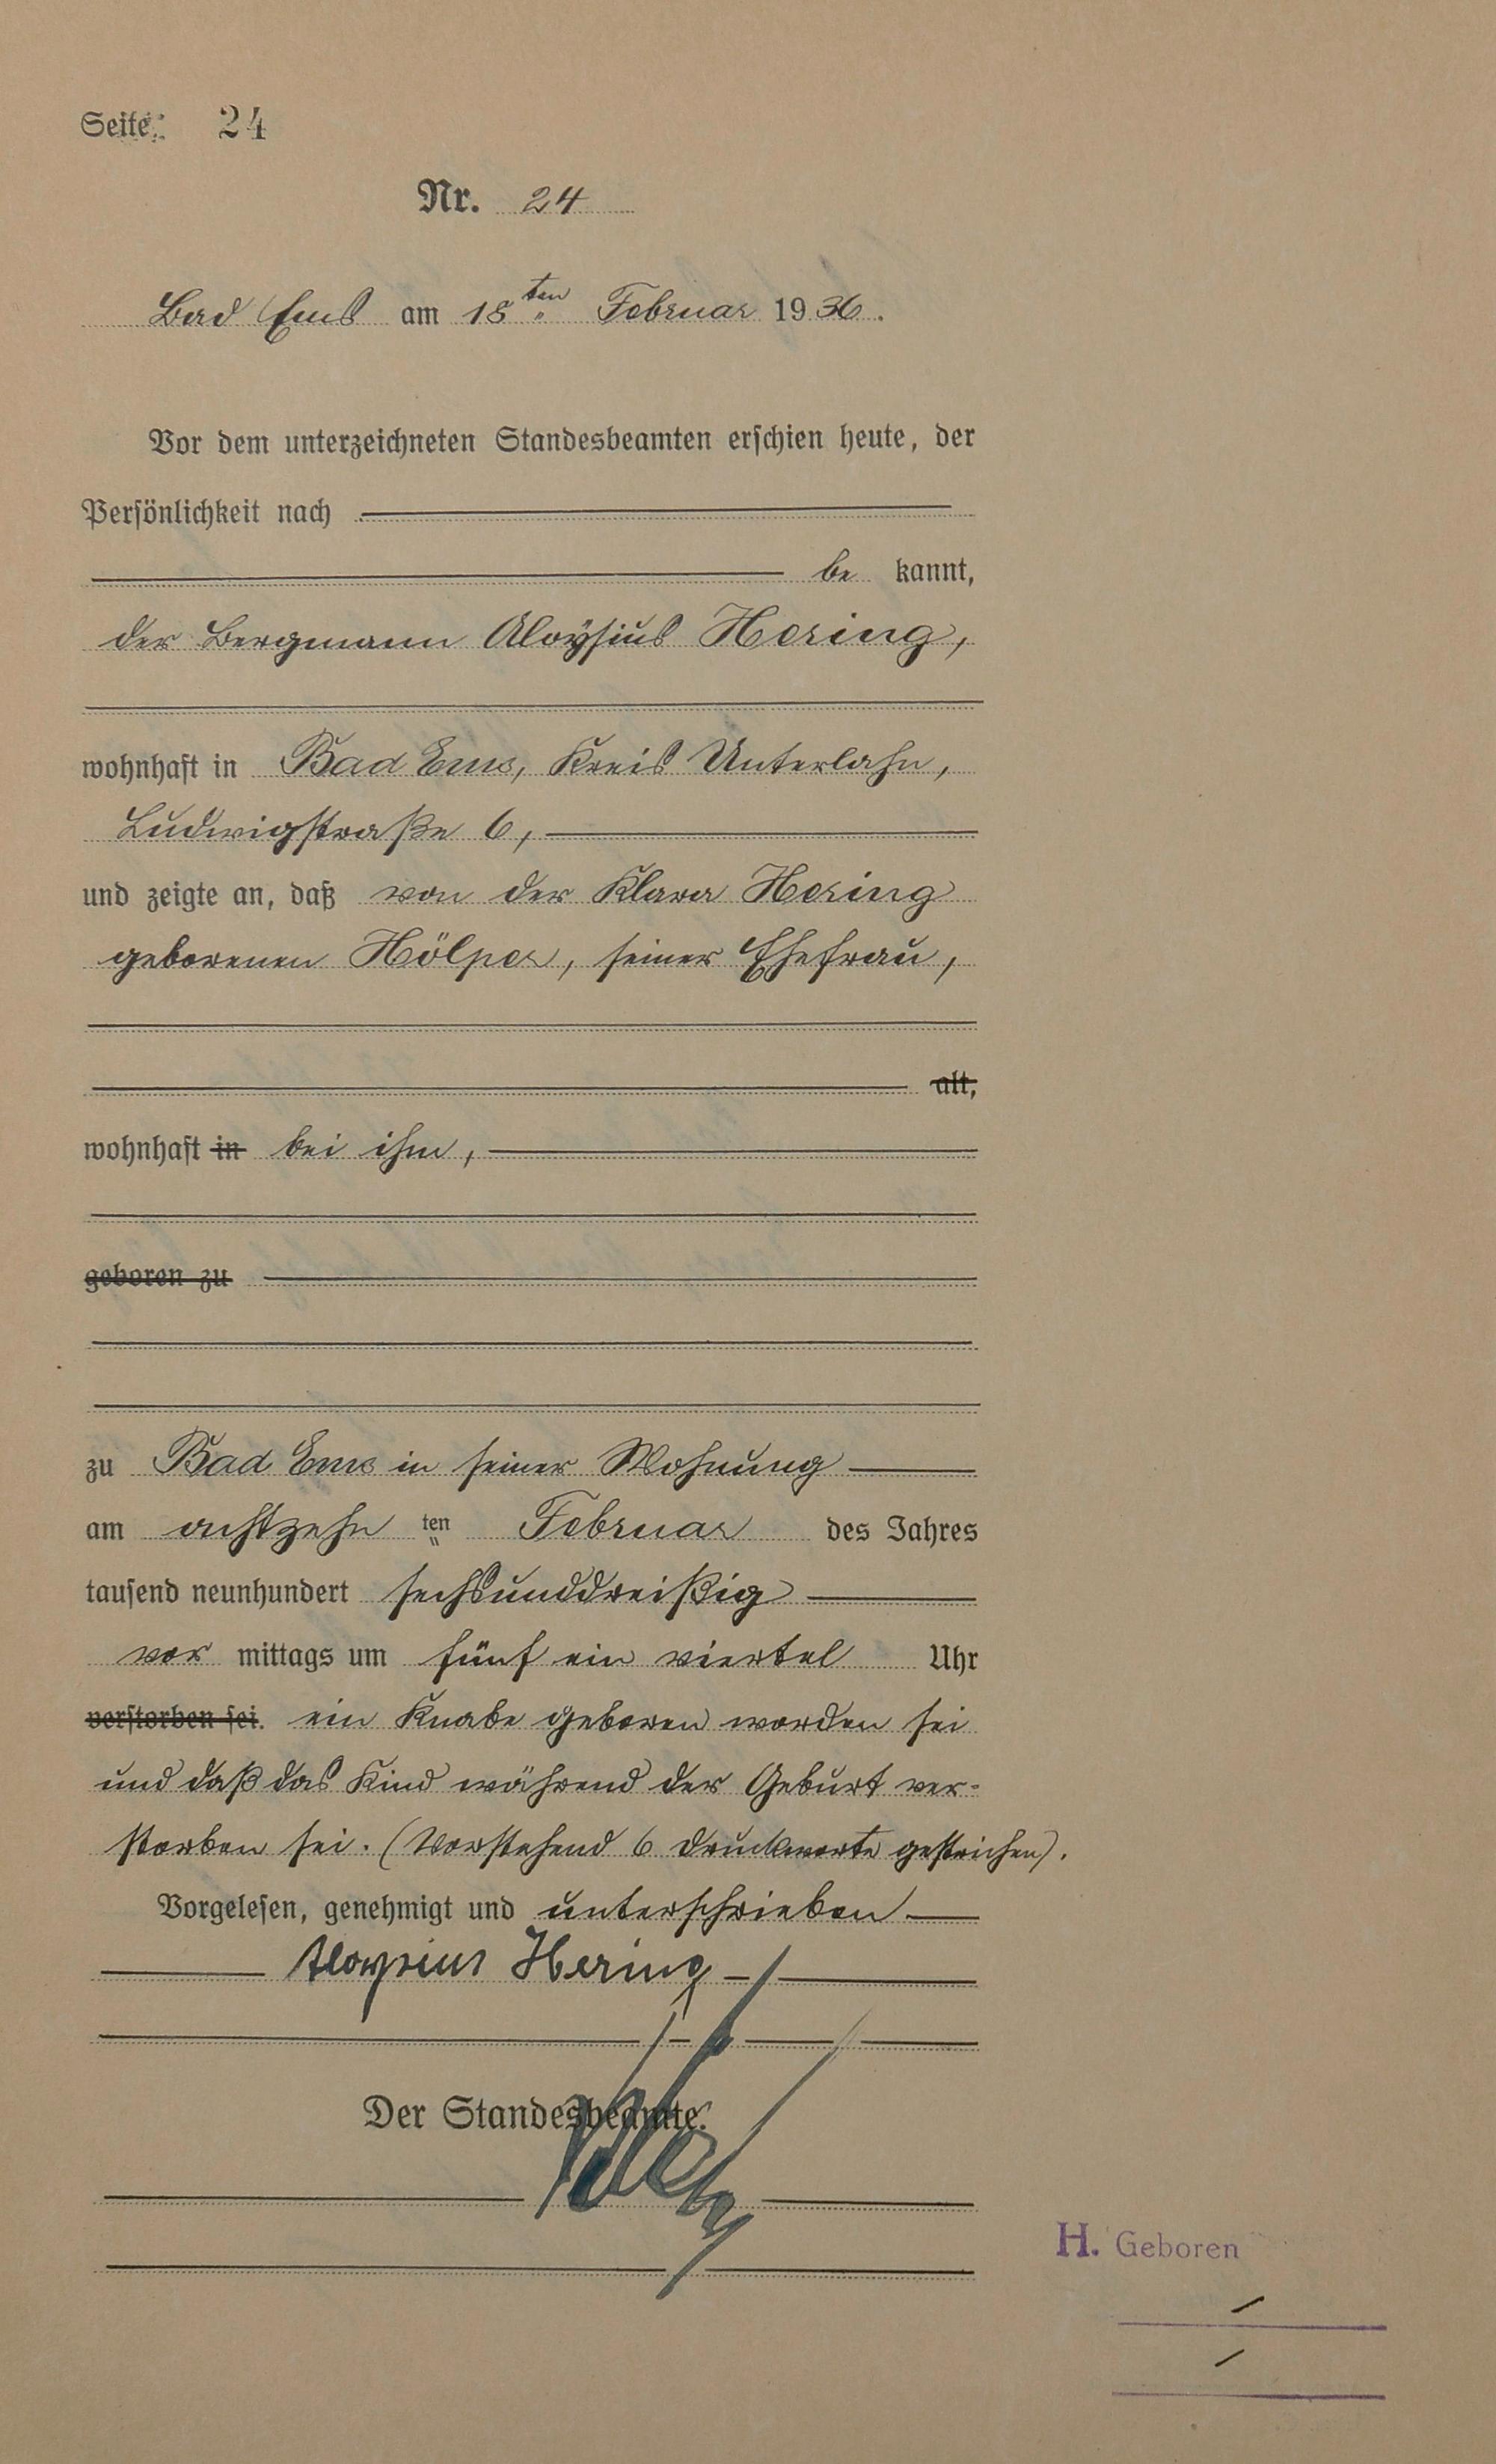 Seite: 24
Nr. 24
Bad Ems am 18ten Februar 1936.
Vor dem unterzeichneten Standesbeamten erschien heute, der
Persönlichkeit nach
be kannt,
der Bergmann Aloysius Hering,
wohnhaft in Bad Ems, Kreis Unterlahn,
Ludwigstraße 6,
und zeigte an, daß von der Klara Hering
geborenen Hölper, seiner Ehefrau,
alt,
wohnhaft in bei ihm,
geboren zu
zu Bad Ems in seiner Wohnung
am achtzehn ten Februar des Jahres
tausend neunhundert sechsunddreißig
vor mittags um fünf ein viertel Uhr
verstorben sei. ein Knabe geboren worden sei
und daß das Kind während der Geburt ver-
storben sei. (Vorstehend 6 Druckworte gestrichen).
Vorgelesen, genehmigt und unterschrieben
Aloysius Hering
Der Standesbeamte.
H. Geboren